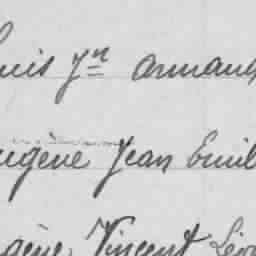 ouis Jn Armand
ugène Jean Emil
gène, Vincent Léo